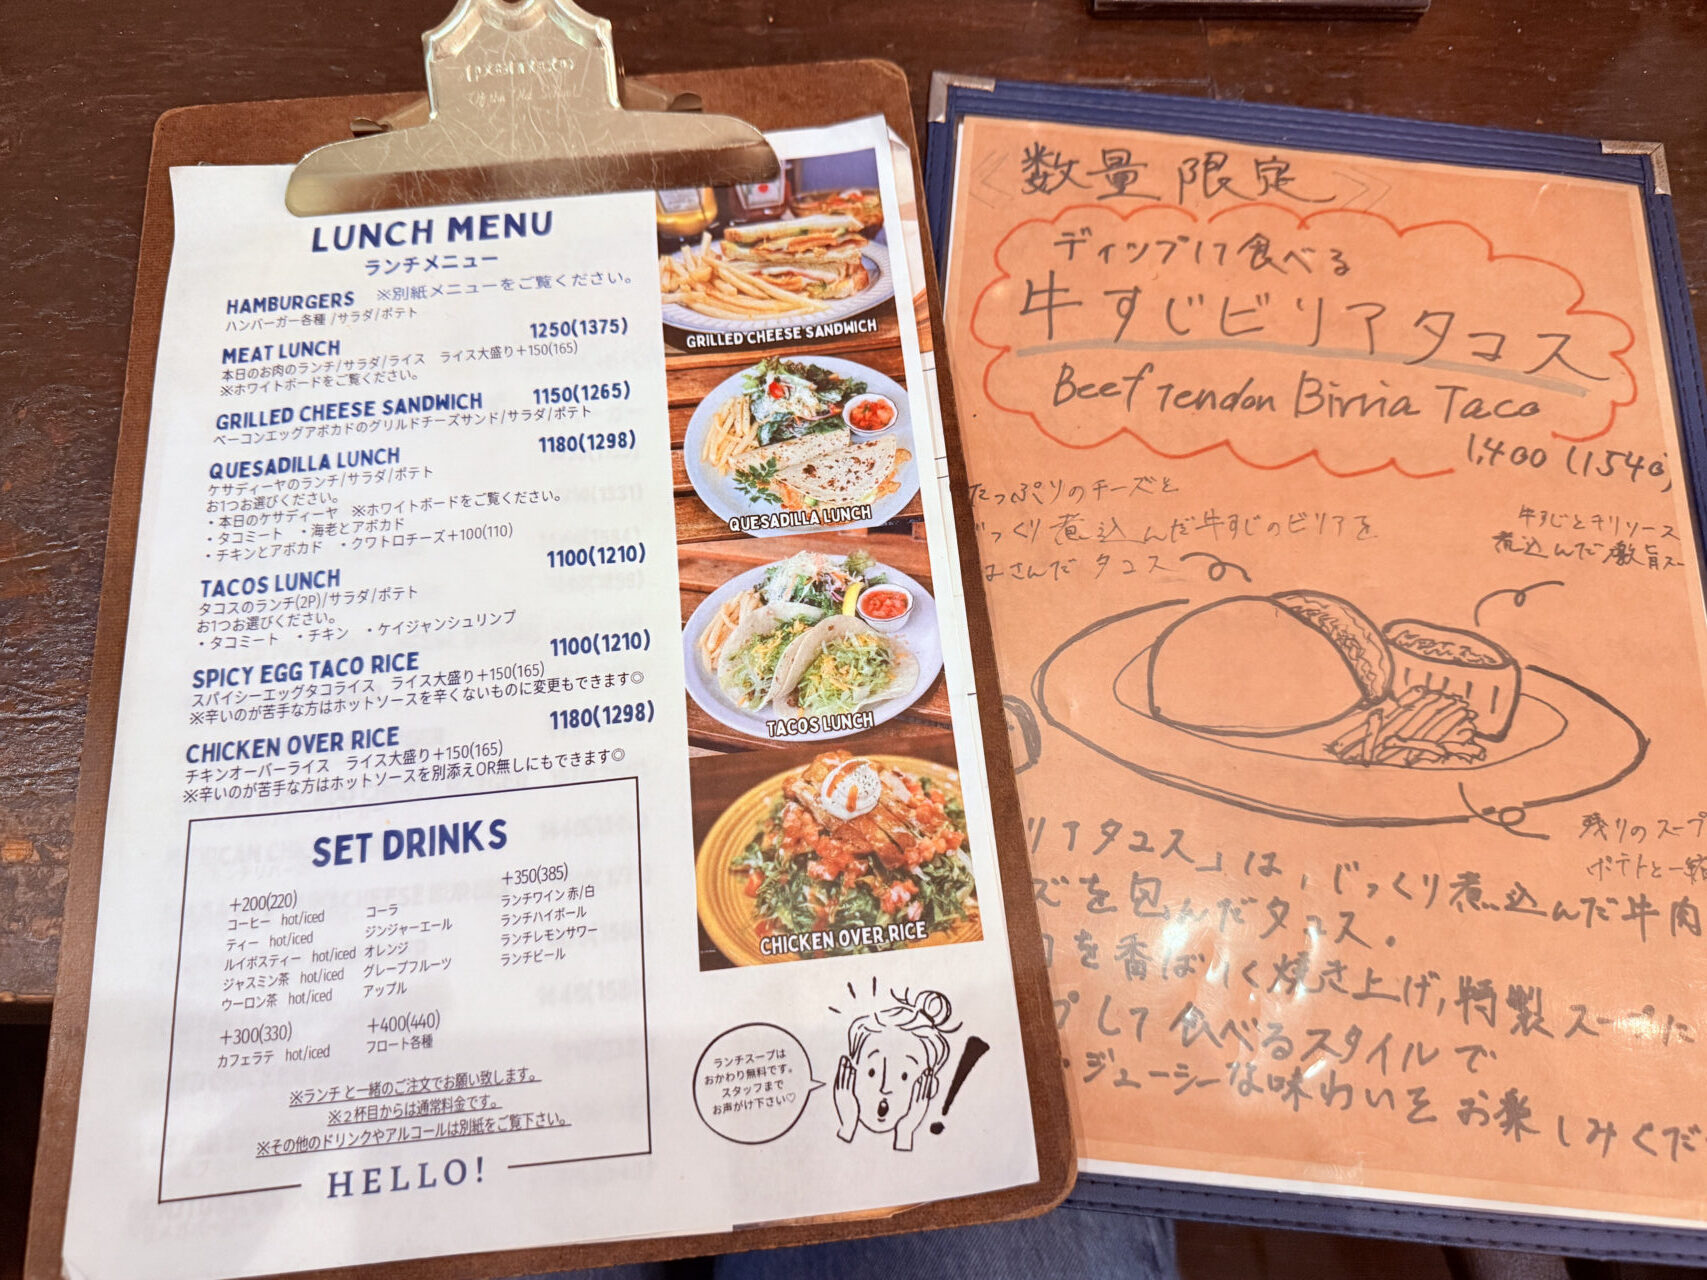 LUNCH MENU
ランチメニュー
HAMBURGERS ※別紙メニューをご覧ください。
ハンバーガー各種 /サラダ/ポテト
MEAT LUNCH 1250(1375)
本日のお肉のランチ/サラダ/ライス ライス大盛り+150(165)
※ホワイトボードをご覧ください。
GRILLED CHEESE SANDWICH 1150(1265)
ベーコンエッグアボカドのグリルドチーズサンド/サラダ/ポテト
QUESADILLA LUNCH 1180(1298)
ケサディーヤのランチ/サラダ/ポテト
お1つお選びください。
・本日のケサディーヤ ※ホワイトボードをご覧ください。
・タコミート ・海老とアボカド
・チキンとアボカド ・クワトロチーズ+100(110)
TACOS LUNCH 1100(1210)
タコスのランチ(2P)/サラダ/ポテト
お1つお選びください。
・タコミート ・チキン ・ケイジャンシュリンプ
SPICY EGG TACO RICE 1100(1210)
スパイシーエッグタコライス ライス大盛り+150(165)
※辛いのが苦手な方はホットソースを辛くないものに変更もできます◎
CHICKEN OVER RICE 1180(1298)
チキンオーバーライス ライス大盛り+150(165)
※辛いのが苦手な方はホットソースを別添えOR無しにもできます◎
SET DRINKS
+200(220)
コーヒー hot/iced
ティー hot/iced
ルイボスティー hot/iced
ジャスミン茶 hot/iced
ウーロン茶 hot/iced
コーラ
ジンジャーエール
オレンジ
グレープフルーツ
アップル
+350(385)
ランチワイン 赤/白
ランチハイボール
ランチレモンサワー
ランチビール
+300(330)
カフェラテ hot/iced
+400(440)
フロート各種
※ランチと一緒のご注文でお願い致します。
※2杯目からは通常料金です。
※その他のドリンクやアルコールは別紙をご覧下さい。
HELLO!
GRILLED CHEESE SANDWICH
QUESADILLA LUNCH
TACOS LUNCH
CHICKEN OVER RICE
ランチスープは
おかわり無料です。
スタッフまで
お声がけ下さい♡
《数量限定》
ディップして食べる
牛すじビリアタコス
Beef Tendon Birria Taco
1,400 (1540)
たっぷりのチーズと
っくり煮込んだ牛すじのビリアを
はさんだタコス
牛すじとチリソース
煮込んだ激旨スー
残りのスープ
ポテトと一緒
リアタコス」は、じっくり煮込んだ牛肉
ズを包んだタコス。
を香ばしく焼き上げ,特製スープに
プして食べるスタイルで
・ジューシーな味わいをお楽しみくだ